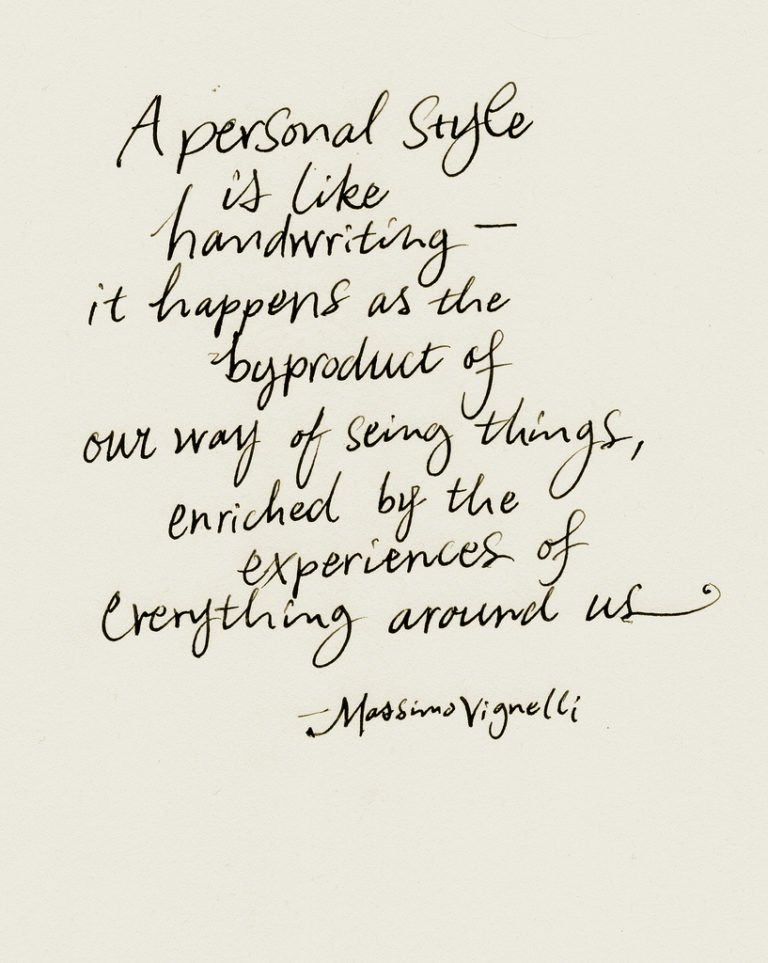 A personal style
is like
handwriting —
it happens as the
byproduct of
our way of seing things,
enriched by the
experiences of
everything around us
— Massimo Vignelli